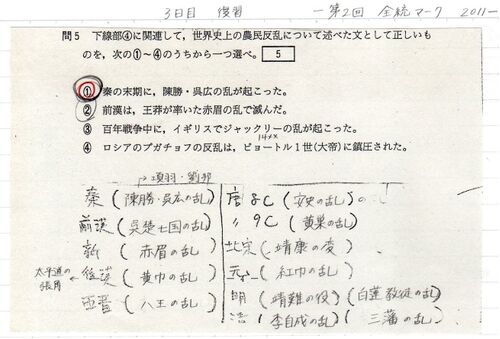 3日目 復習 一第2回 全統マーク 2011
問5 下線部④に関連して，世界史上の農民反乱について述べた文として正しいも
のを，次の①～④のうちから一つ選べ。 5
① 秦の末期に，陳勝・呉広の乱が起こった。
② 前漢は，王莽が率いた赤眉の乱で滅んだ。
③ 百年戦争中に，イギリスでジャックリーの乱が起こった。
④ ロシアのプガチョフの反乱は，ピョートル1世(大帝)に鎮圧された。
項羽・劉邦
秦(陳勝・呉広の乱)
前漢(呉楚七国の乱)
新(赤眉の乱)
太平道の張角 後漢(黄巾の乱)
西晋(八王の乱)
唐8C(安史の乱)
〃9C(黄巣の乱)
北宋(靖康の変)
元(紅巾の乱)
明(靖難の役)(白蓮教徒の乱)
(李自成の乱)(三藩の乱)